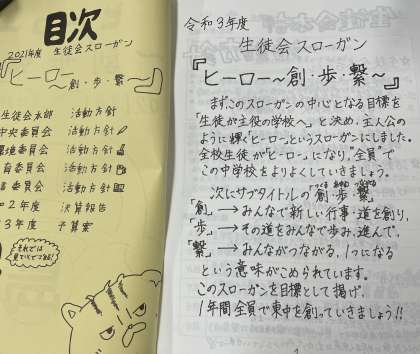 目次
2021年度 生徒会スローガン
『ヒーロー
～創・歩・繋～』
生徒会本部 活動方針
中央委員会 活動方針
環境委員会 活動方針
育委員会 活動方針
委員会 活動方針
和2年度 決算報告
3年度 予算案
それでは
見ていってみよう!
令和3年度
生徒会スローガン
『ヒーロー～創・歩・繋～』
まず、このスローガンの中心となる目標を
「生徒が主役の学校へ」と決め、主人公の
ように輝く「ヒーロー」というスローガンにしました。
全校生徒が「ヒーロー」になり、"全員"で
この中学校をよりよくしていきましょう。
次にサブタイトルの「創・歩・繋」
「創」→みんなで新しい行事・道を創り、
「歩」→その道をみんなで歩み、進んで、
「繋」→みんながつながる、1つになる
という意味がこめられています。
このスローガンを目標として掲げ、
1年間全員で東中を創っていきましょう!!